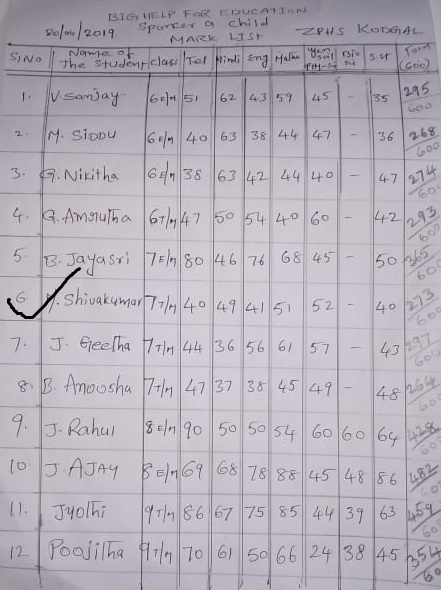 BIG HELP FOR EDUCATION
20/04/2019 Sponcer a child ZPHS KODGAL
MARK LIST
S,No Name of The Student class Tel Hindi Eng Maths Gen Sci PH-Sci Bio Sci S.st Total (600)
1. V. Sanjay 6E/M 51 62 43 59 45 - 35 295/600
2. M. SIDDU 6E/M 40 63 38 44 47 - 36 268/600
3. G. Nikitha 6E/M 38 63 42 44 40 - 47 274/600
4. G. Amrutha 6T/M 47 50 54 40 60 - 42 293/600
5. B. Jayasri 7E/M 80 46 76 68 45 - 50 365/600
6 Shivakumar 7T/M 40 49 41 51 52 - 40 273/600
7. J. Geetha 7T/M 44 36 56 61 57 - 43 297/600
8. B. Anousha 7T/M 47 37 38 45 49 - 48 264/600
9. J. Rahul 8E/M 90 50 50 54 60 60 64 428/600
10 J. AJAY 8E/M 69 68 78 88 45 48 86 482/600
11. Jyothi 9T/M 86 67 75 85 44 39 63 459/600
12 Poojitha 9T/M 70 61 50 66 24 38 45 354/60